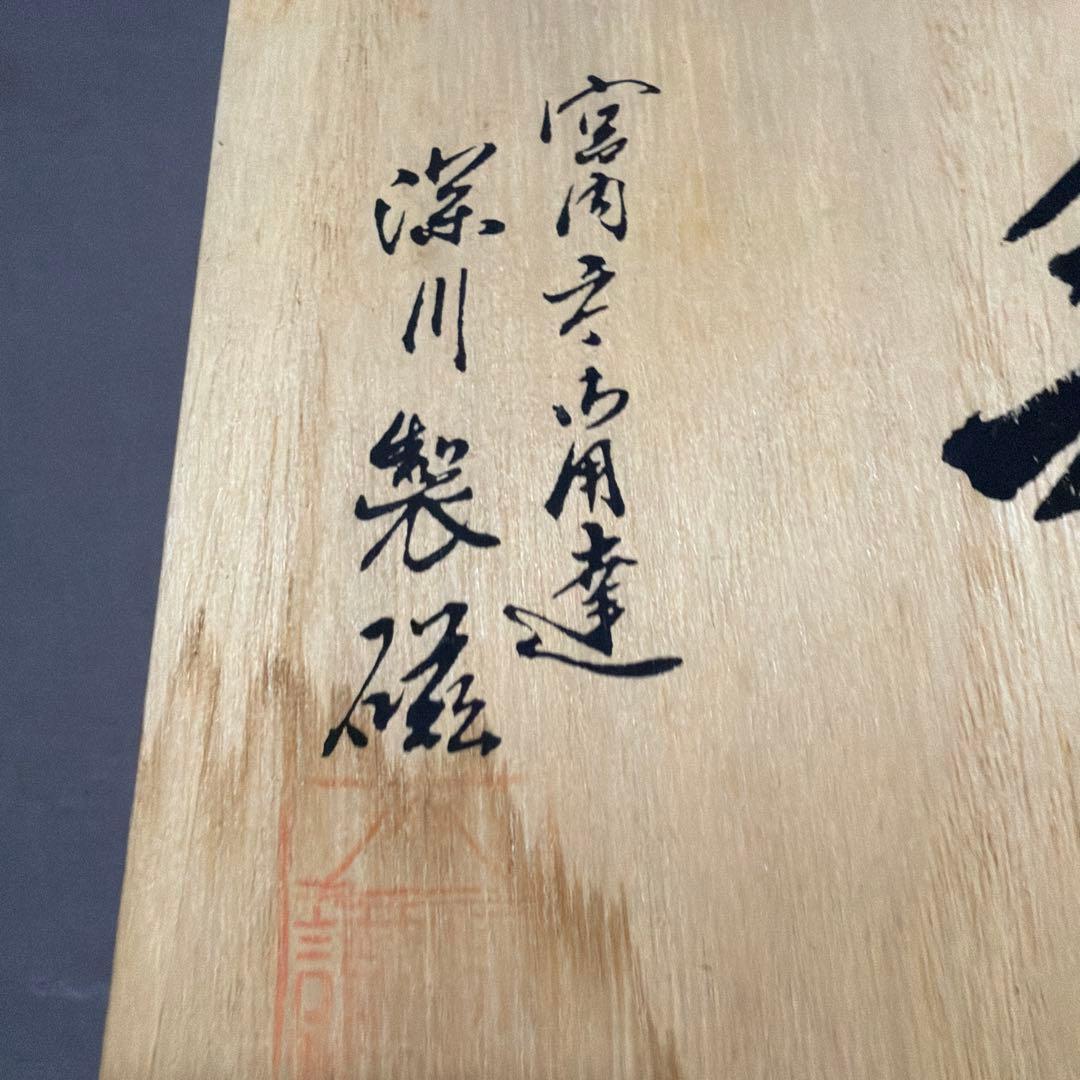 宮内庁御用達
深川製磁